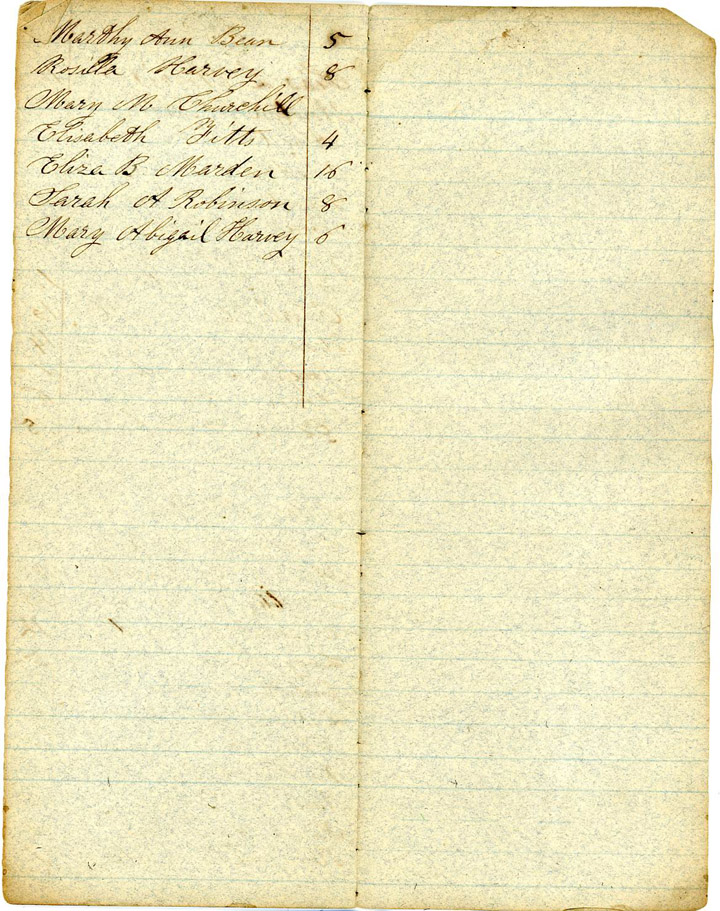 Marthy Ann Bean 5
Rosilla Harvey 8
Mary M Churchill
Elisabeth Fitts 4
Eliza B Marden 16
Sarah A Robinson 8
Mary Abigail Harvey 6